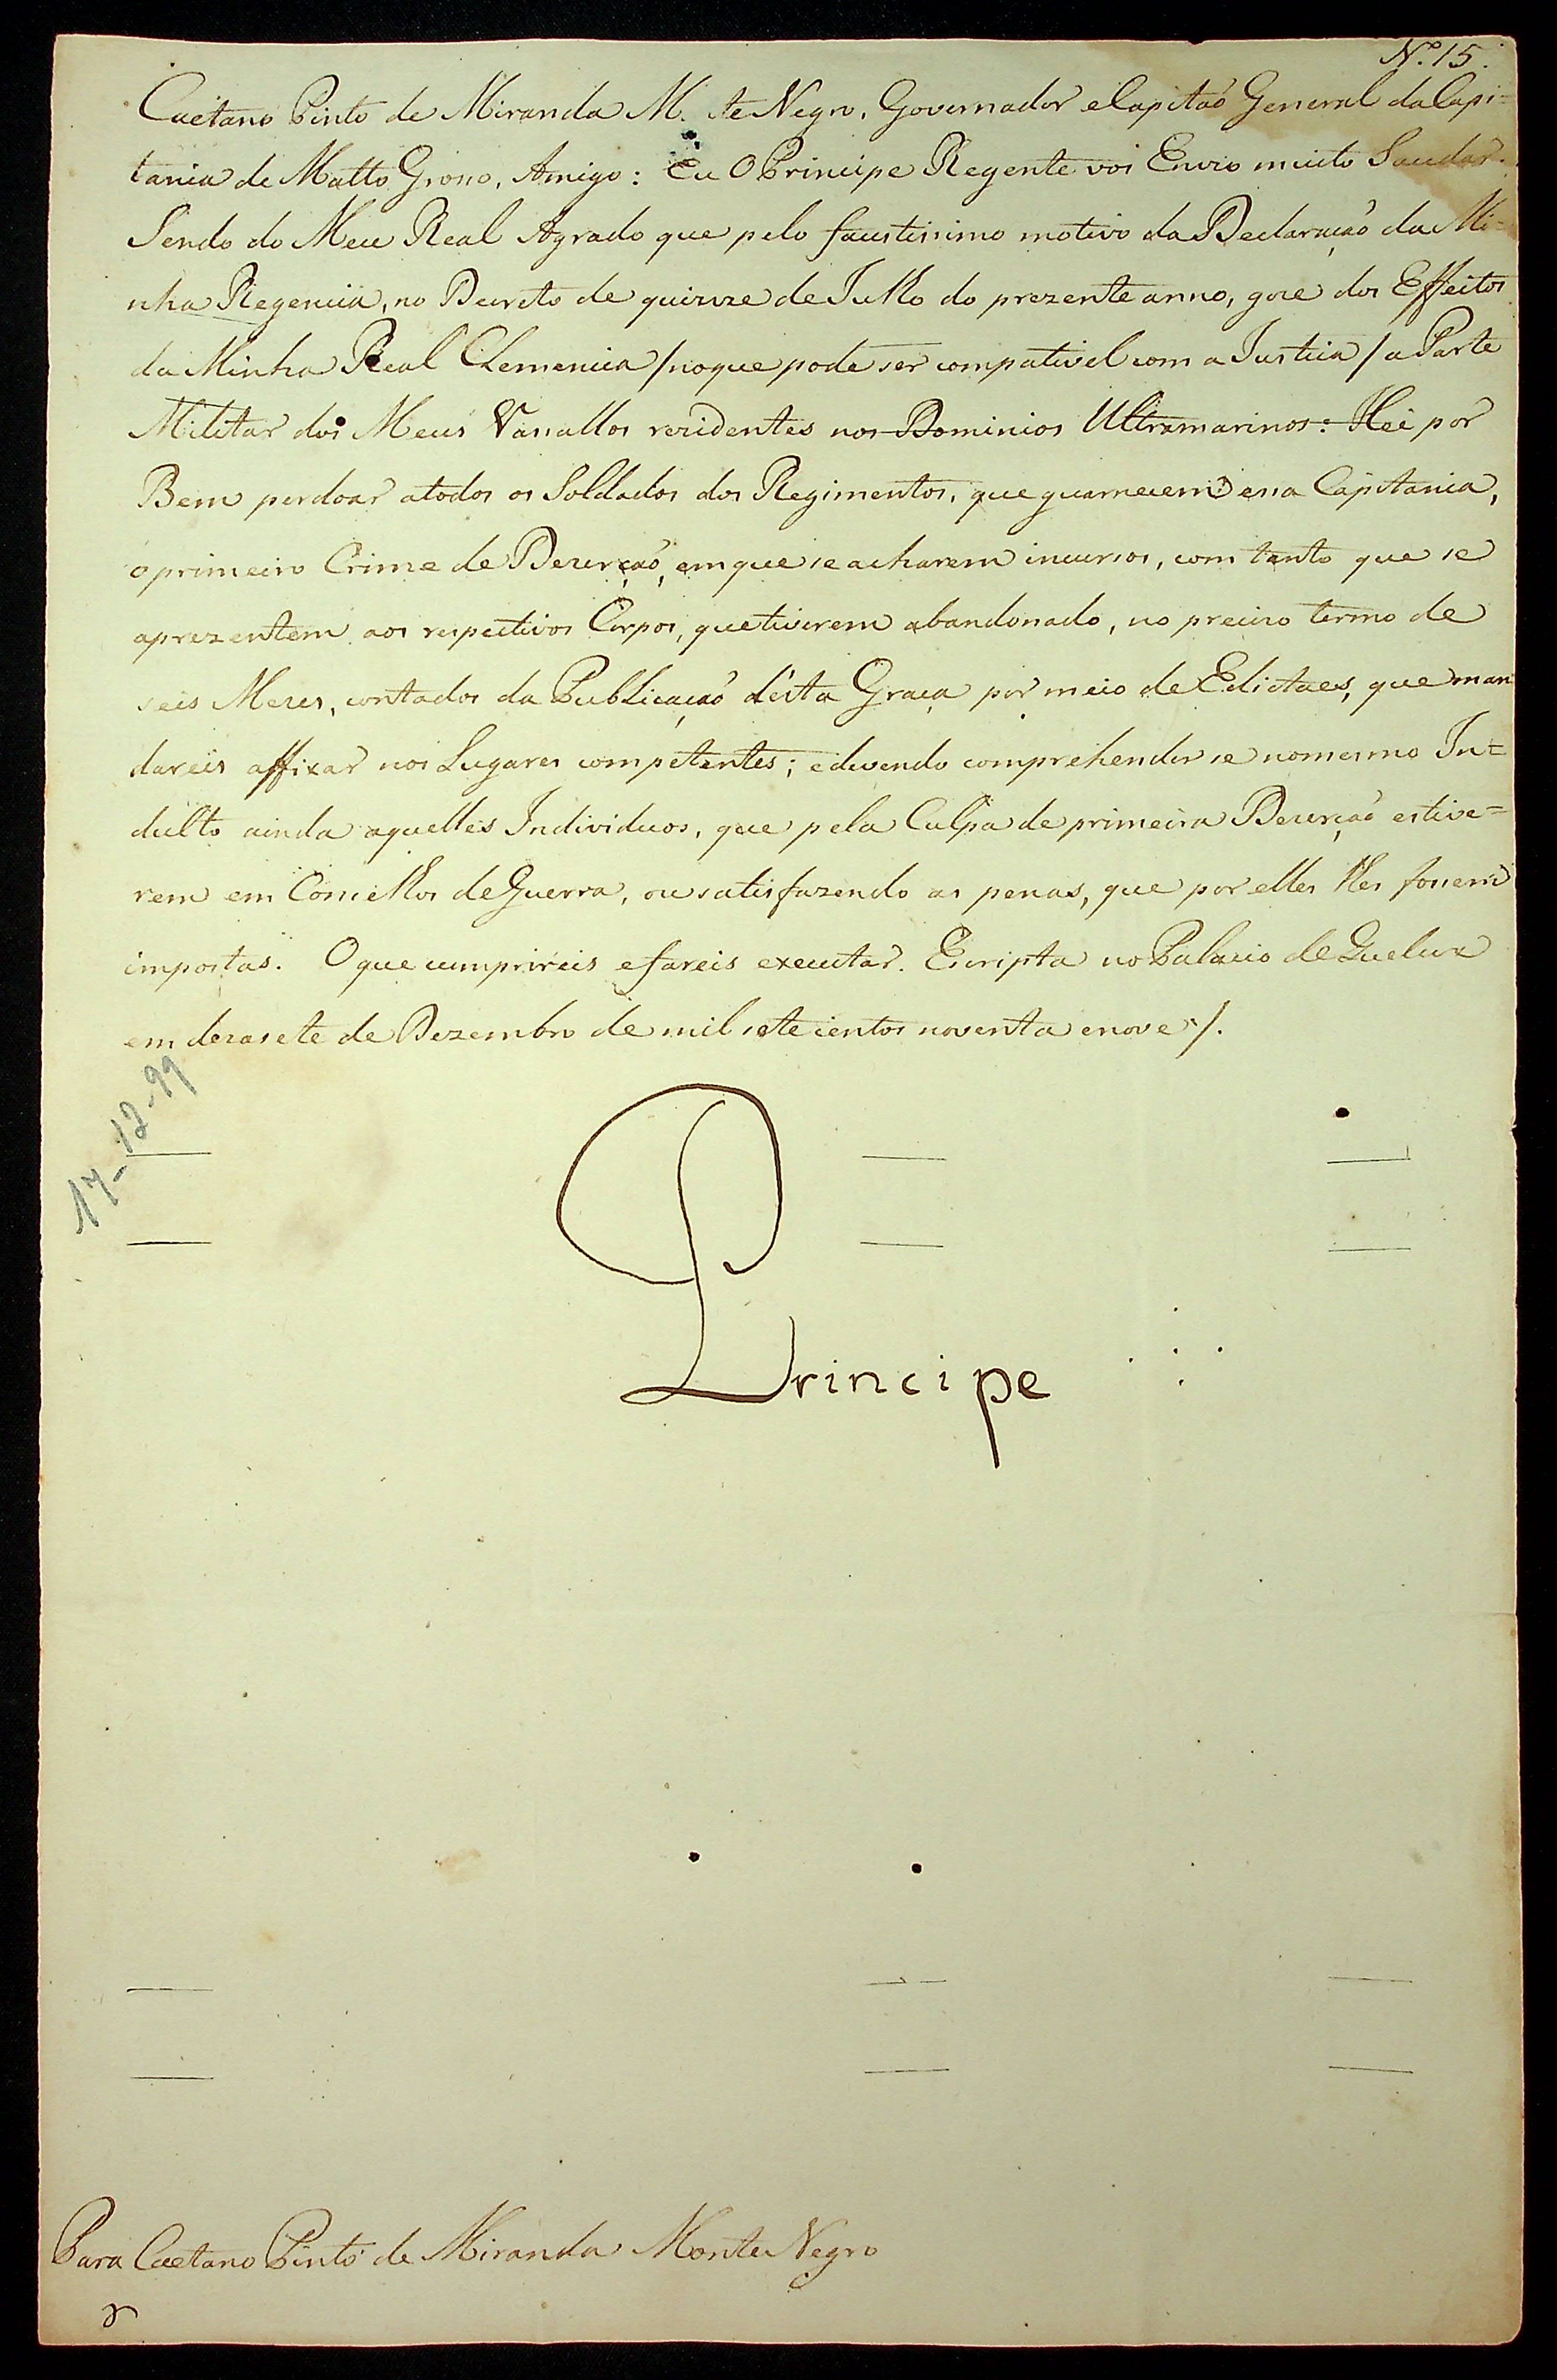 Nº. 15.
Caetano Pinto de Miranda M.te Negro, Governador e Capitaõ General da Capi=
tania de Matto Grosso, Amigo: Eu O Principe Regente vos Envio muito Saudar.
Sendo do Meu Real Agrado que pelo faustissimo motivo da Declaraçaõ da Mi=
nha Regencia, no Decreto de quinze de Julho do prezente anno, goze dos Effeitos
da Minha Real Clemencia /no que pode ser compativel com a Justiça/ a Parte
Militar dos Meus Vassallos rezidentes nos Dominios Ultramarinos: Hei por
Bem perdoar a todos os Soldados dos Regimentos, que guarnecem essa Capitania,
o primeiro Crime de Dezerçaõ, em que se acharem incursos, com tanto que se
aprezentem aos respectivos Corpos, que tiverem abandonado, no precizo termo de
seis Mezes, contados da Publicaçaõ d'esta Graça por meio de Edictaes, que man
dareis affixar nos Lugares competentes; e devendo comprehender se no mesmo In=
dulto ainda aquelles Individuos, que pela Culpa de primeira Dezerçaõ estive=
rem em Concelhos de Guerra, ou satisfazendo as penas, que por elles lhes fossem
impostas. O que cumprireis e fareis executar. Escripta no Palacio de Queluz
em dezasete de Dezembro de mil sete centos noventa e nove /.
17-12-99
Principe
Para Caetano Pinto de Miranda Monte Negro